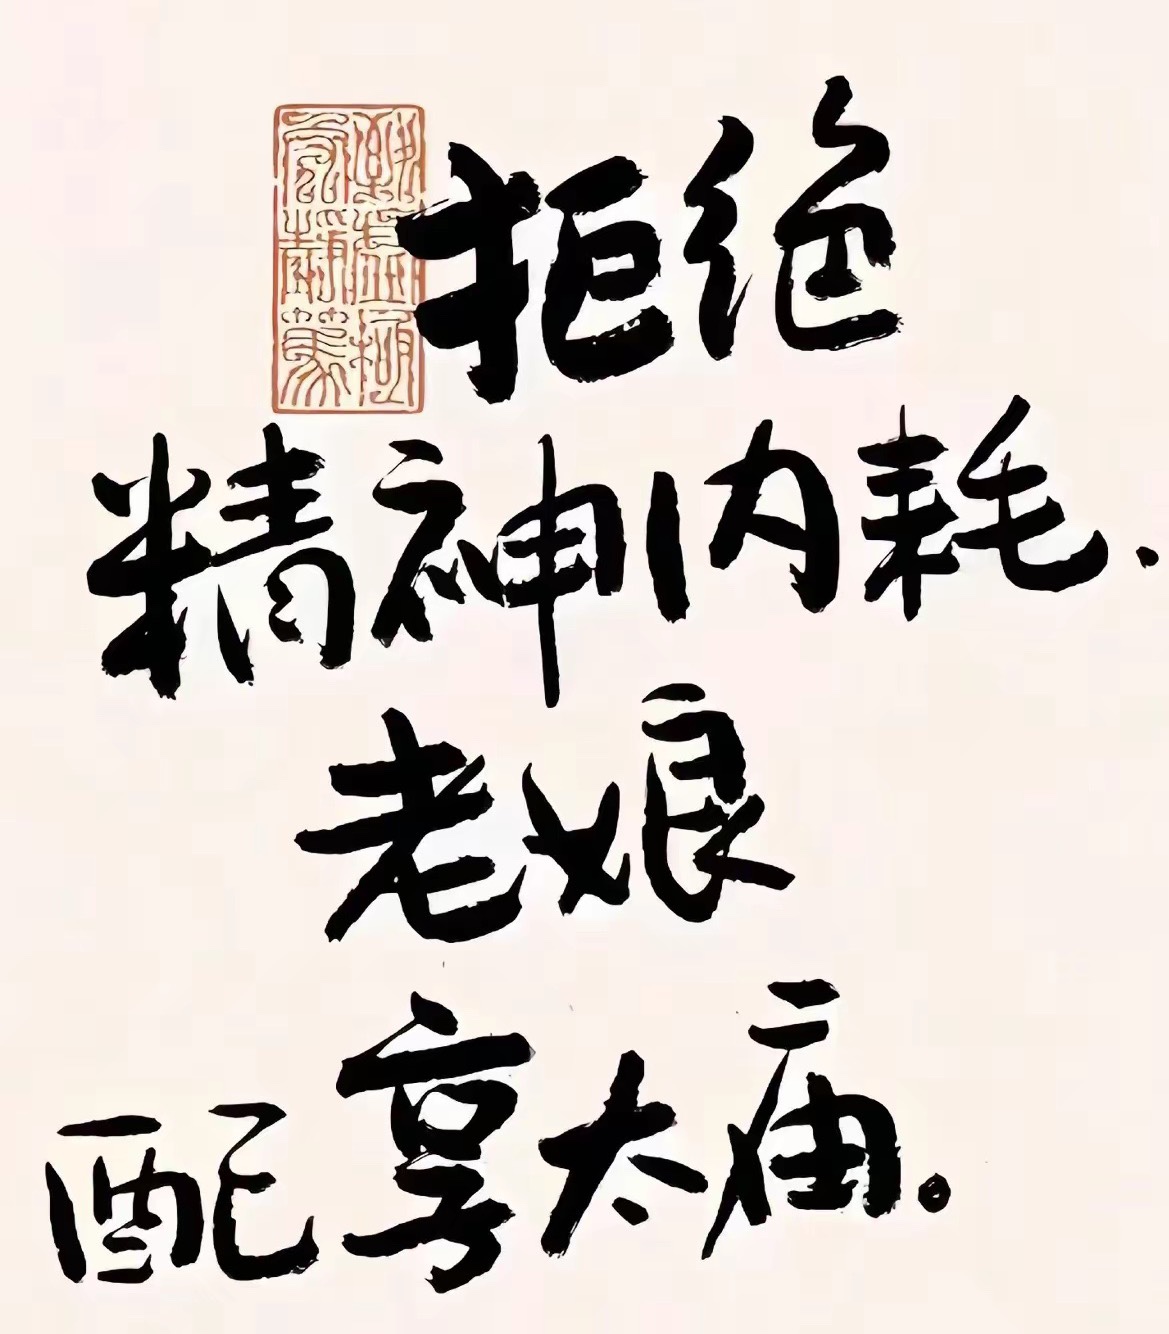 拒绝
精神内耗.
老娘
配享太庙。